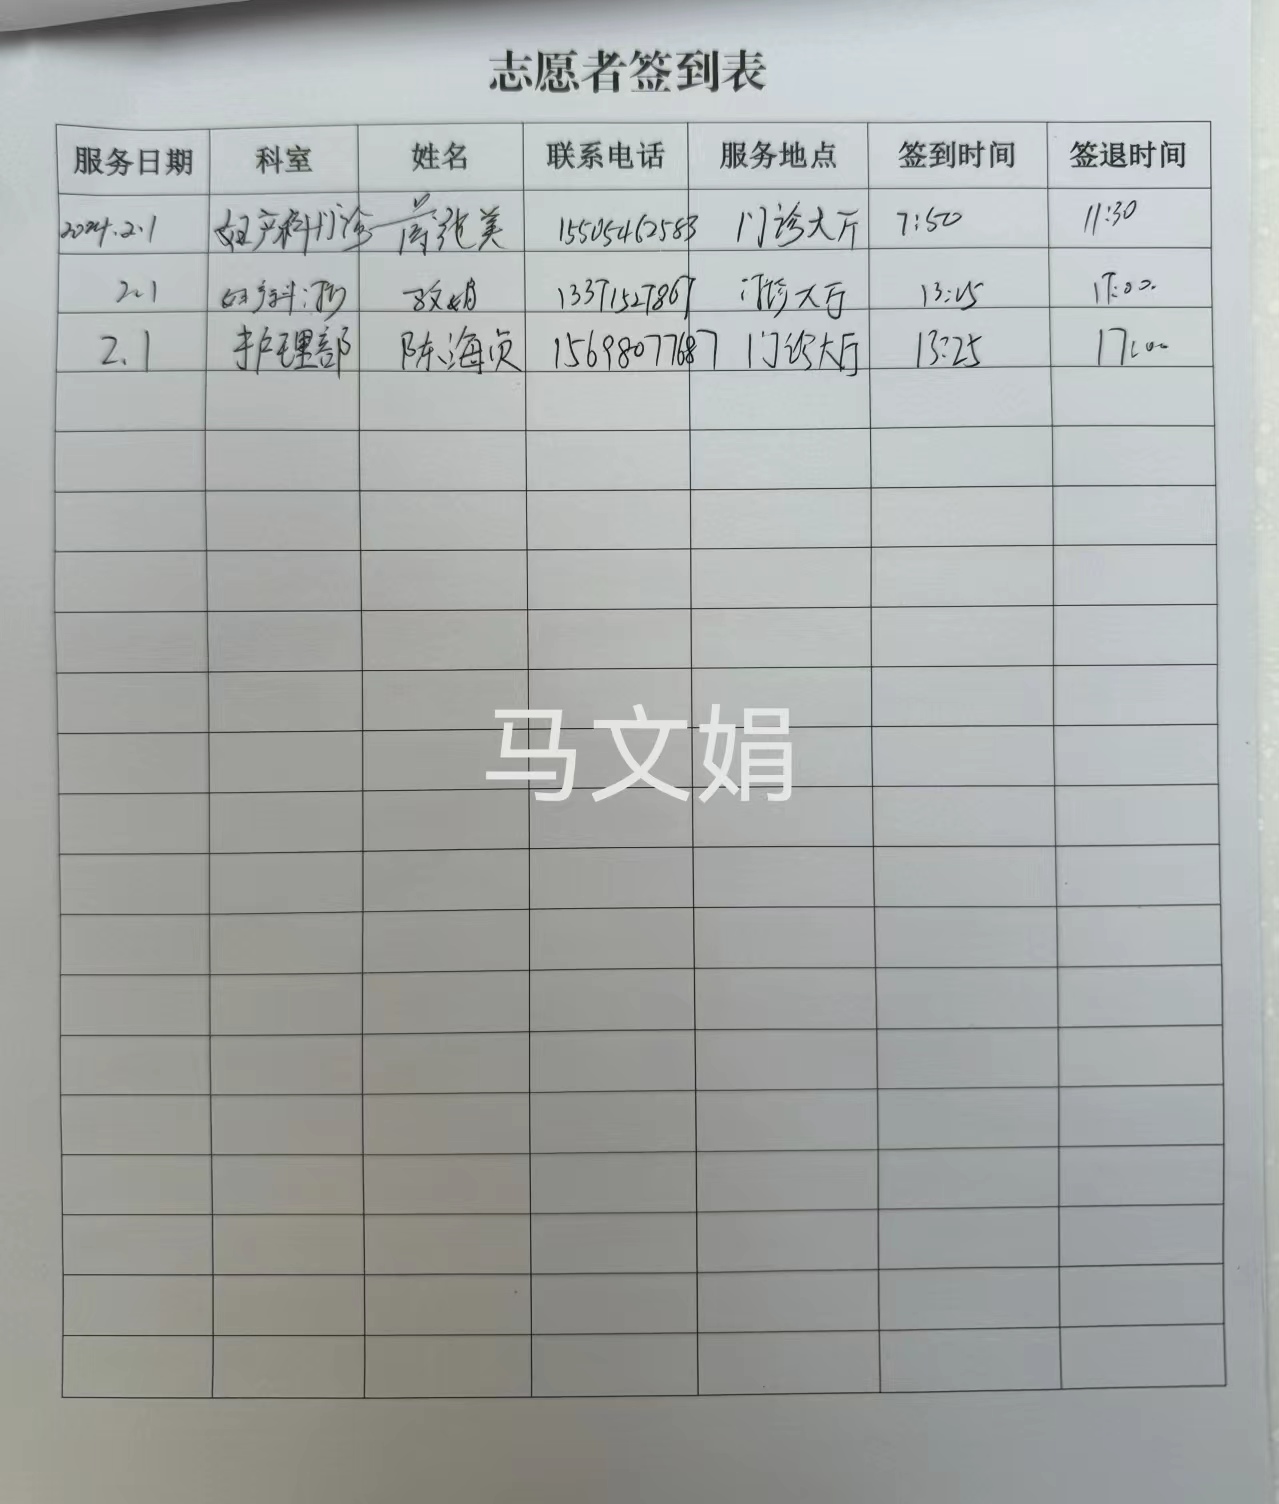 志愿者签到表
服务日期 科室 姓名 联系电话 服务地点 签到时间 签退时间
2024.2.1 妇产科门诊 美 15505462583 门诊大厅 7:50 11:30
2.1 13371527867 门诊大厅 13:25 17:00
2.1 护理部 陈海贞 15698077687 门诊大厅 13:25 17:00
马文娟